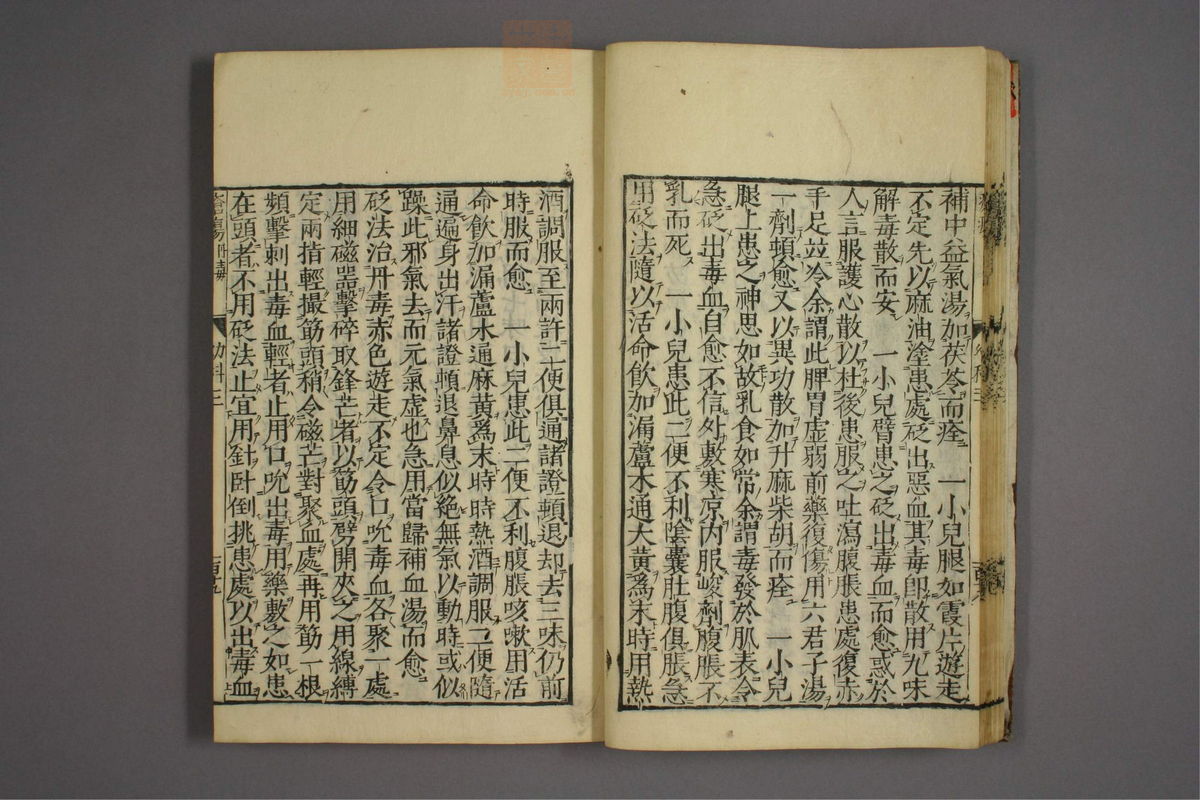 補中益氣湯加茯苓而痊 一小兒腿如霞片遊走
不定先以麻油塗患處砭出惡血其毒卽散用九味
解毒散而安 一小兒臂患之砭出毒血而愈或於
人言服護心散以杜後患服之吐瀉腹脹患處復赤
手足竝冷余謂此脾胃虛弱前藥復傷用六君子湯
一劑頓愈又以異功散加升麻柴胡而痊 一小兒
腿上患之神思如故乳食如常余謂毒發於肌表令
急砭出毒血自愈不信外敷寒凉內服峻劑腹脹不
乳而死 一小兒患此二便不利陰囊肚腹俱脹急
用砭法隨以活命飲加漏蘆木通大黃爲末時用熱
酒調服至兩許二便俱通諸證頓退却去三味仍前
時服而愈 一小兒患此二便不利腹脹咳嗽用活
命飲加漏蘆木通麻黃爲末時時熱酒調服二便隨
通遍身出汗諸證頓退鼻息似絕無氣以動時或似
躁此邪氣去而元氣虛也急用當歸補血湯而愈
砭法治丹毒赤色遊走不定令口吮毒血各聚一處
用細磁器擊碎取鋒芒者以筯頭劈開夾之用線縛
定兩指輕撮筯頭稍令磁芒對聚血處再用筯一根
頻擊刺出毒血輕者止用口吮出毒用藥敷之如患
在頭者不用砭法止宜用針卧倒挑患處以出毒血
瘡瘍丹毒 幼科三